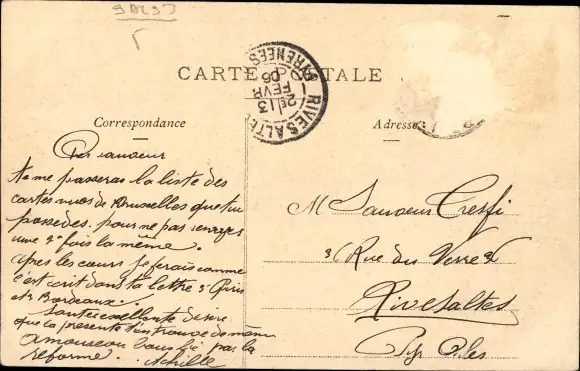 CARTE POSTALE
RIVESALTES
PYRENEES
2E 13
FEVR
06
Correspondance
Adresse
Cher
tu me passeras la liste des
cartes vues de Bruxelles que tu
possedes. pour ne pas
une 2e fois la même.
après les cours je ferais comme
c'est écrit dans ta lettre Paris
et Bordeaux.
Santé excellente desire
que la présente t'en trouve de même
par la
réforme. Achille
M Sauveur
3 Rue du Verre 3
Rivesaltes
Pyr